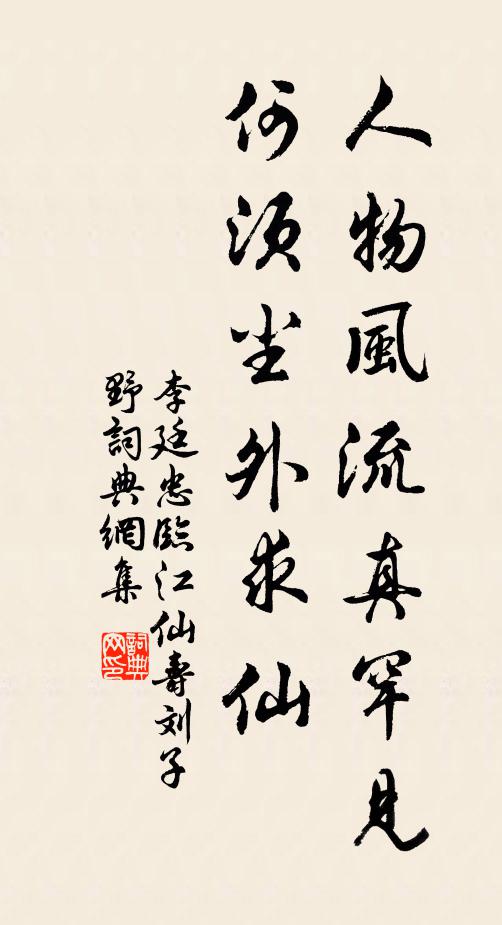 人物風流真罕見
何須尘外求仙
李廷忠臨江仙壽刘子
野詞典網集
詞典网印